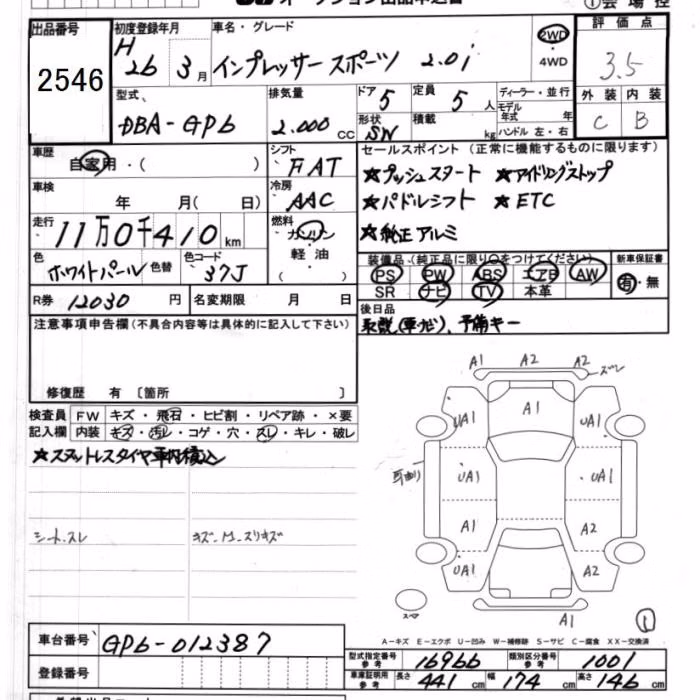 ①会場控
出品番号 2546
初度登録年月 H 26 3月
車名・グレード インプレッサースポーツ 2.0i
2WD・4WD
評価点 3.5
型式 DBA-GP6
排気量 2.000 CC
ドア 5 定員 5人
形状 SW 積載 kg
ディーラー・並行
モデル年式 年
ハンドル 左・右
外装 C 内装 B
車歴 自家用・( )
シフト FAT
セールスポイント (正常に機能するものに限ります)
★プッシュスタート ★アイドリングストップ
車検 年 月( 日)
冷房 AAC
★パドルシフト ★ETC
走行 11万0千410km
燃料 ガソリン・軽油・( )
★純正アルミ
色 ホワイトパール 色替 色コード 37J
装備品(純正品に限り○をつけてください) 新車保証書
PS PW ABS エアB AW 有・無
SR ナビ TV 本革
R券 12030円 名変期限 月 日
後日品
取説(車・ナビ)、予備キー
注意事項申告欄(不具合内容等は具体的に記入して下さい)
修復歴 有 〔箇所 〕
検査員 FW キズ・飛石・ヒビ割・リペア跡・×要
記入欄 内装 キズ・汚レ・コゲ・穴・スレ・キレ・破レ
★スタットレスタイヤ車内積込
シート.スレ
A1 A2 A2 ズレ
UA1 A1 UA1
UA1 UA1
A1 A2
UA1 A2
スペア A1
A-キズ E-エクボ U-凹み W-補修跡 S-サビ C-腐食 XX-交換済
車台番号 GP6-012387
型式指定番号 参考 16966 類別区分番号 参考 1001
登録番号
車庫証明用 参考 長さ 441cm 幅 174cm 高さ 146cm